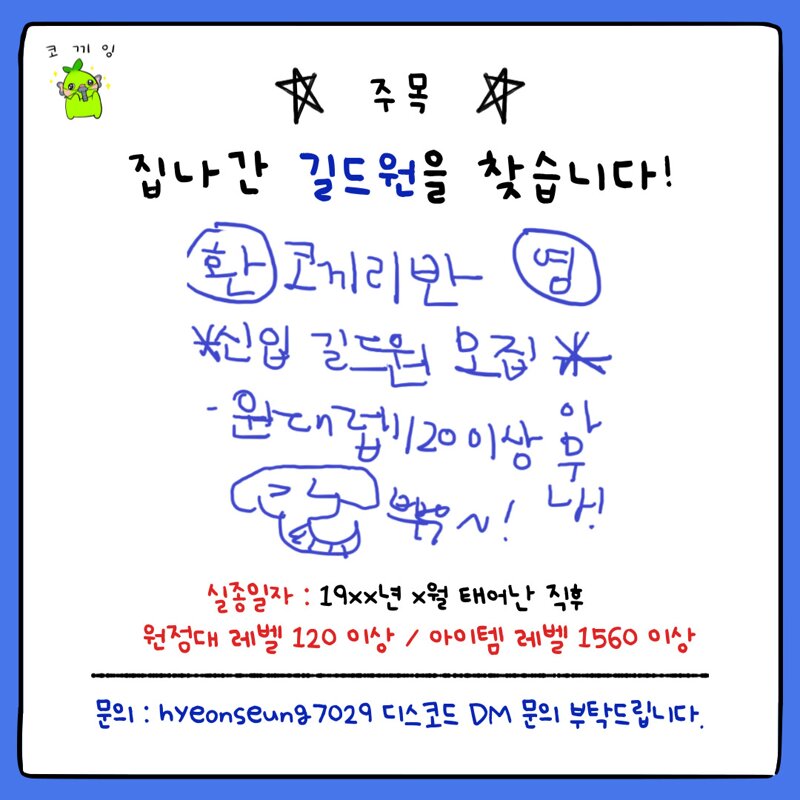 코끼잉
주목
집나간 길드원을 찾습니다!
환 코끼리반 영
*신입 길드원 모집*
- 원대렙 120이상 아무나!
뿍~!
실종일자 : 19xx년 x월 태어난 직후
원정대 레벨 120 이상 / 아이템 레벨 1560 이상
문의 : hyeonseung7029 디스코드 DM 문의 부탁드립니다.